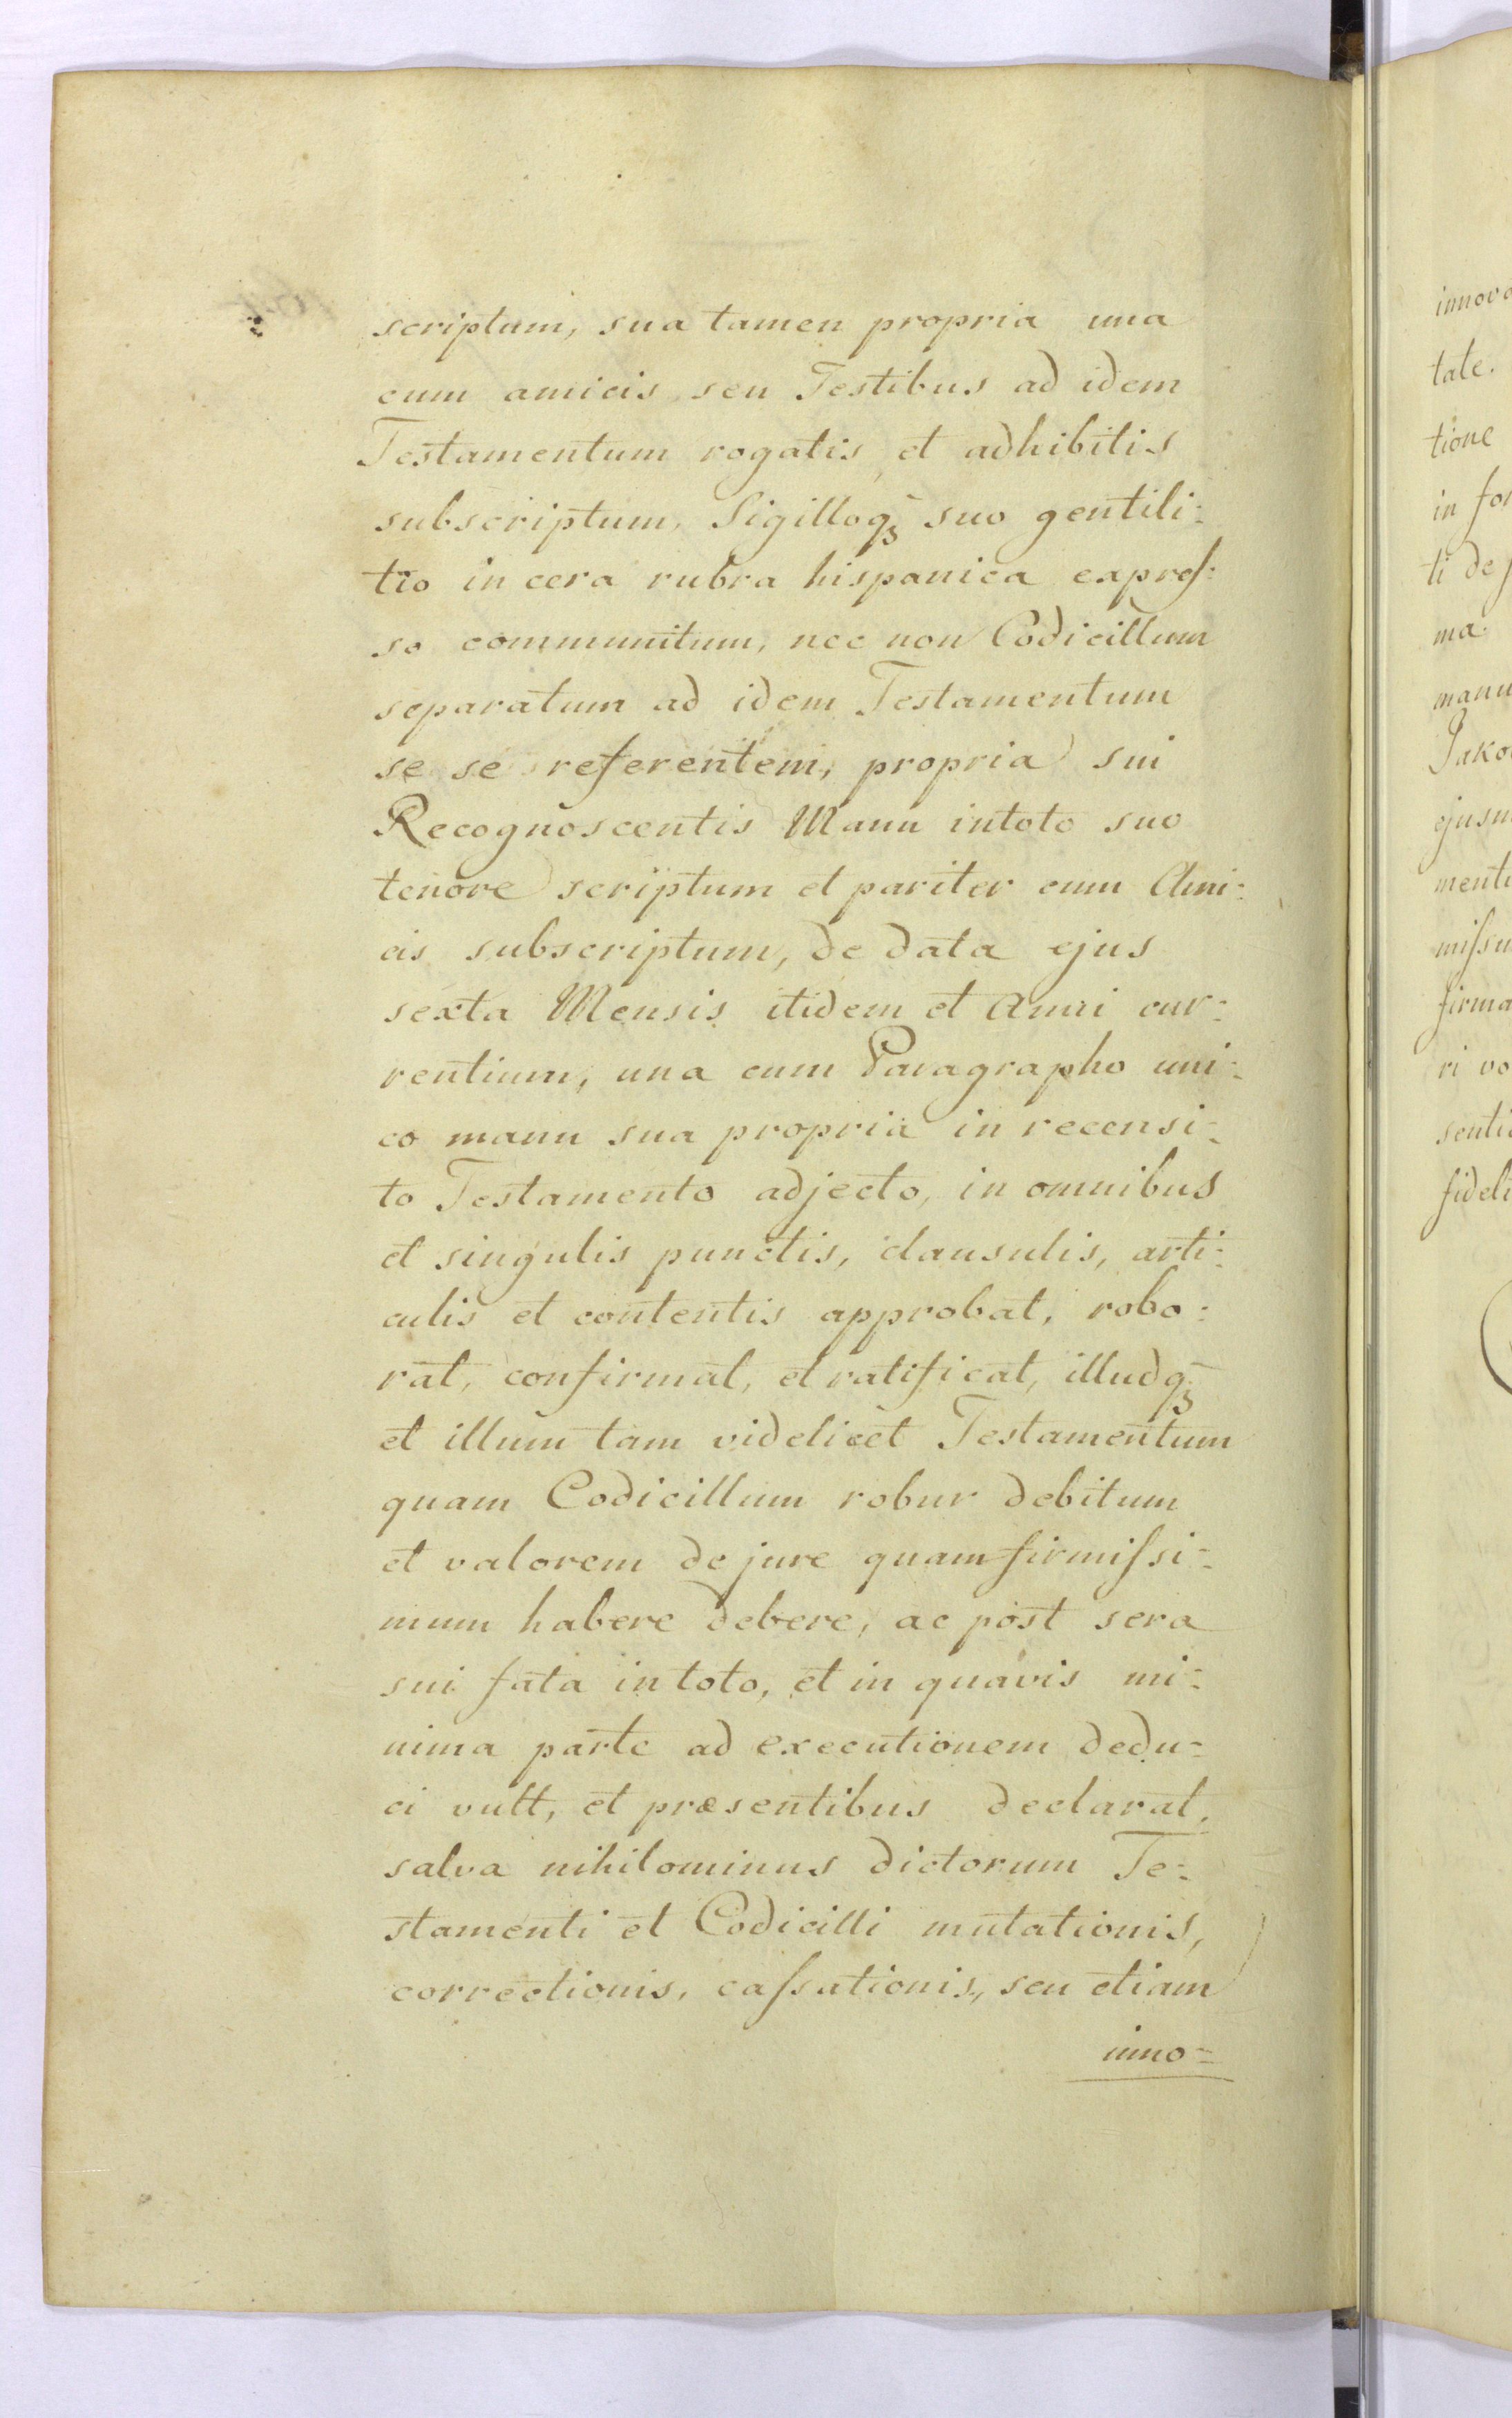 scriptum, sua tamen propria una
cum amicis seu Testibus ad idem
Testamentum rogatis, et adhibitis
subscriptum, Sigilloqꝫ suo gentili:
tio in cera rubra hispanica expreſ:
so communitum, nec non Codicillum
separatum ad idem Testamentum
se se referentem, propria sui
Recognoscentis Manu intoto suo
tenore scriptum et pariter cum Ami:
cis subscriptum, de data ejus
sexta Mensis itidem et Anni cur:
rentium, una cum Paragrapho uni:
co manu sua propria in recensi:
to Testamento adjecto, in omnibus
et singulis punctis, clausulis, arti:
culis et contentis approbat, robo:
rat, confirmat, et ratificat, illudqꝫ
et illum tam videlicet Testamentum
quam Codicillum robur debitum
et valorem de jure quam firmiſsi:
mum habere debere, ac post sera
sui fata in toto, et in quavis mi:
nima parte ad executionem dedu:
ci vult, et præsentibus declarat,
salva nihilominus dictorum Te:
stamenti et Codicilli mutationis,
correctionis, caſsationis, seu etiam
inno=
innov
tate.
tione
in for
ti de
ma
manu
Jako
ejusm
ment
miſsu
firma
ri vo
senti
fideli